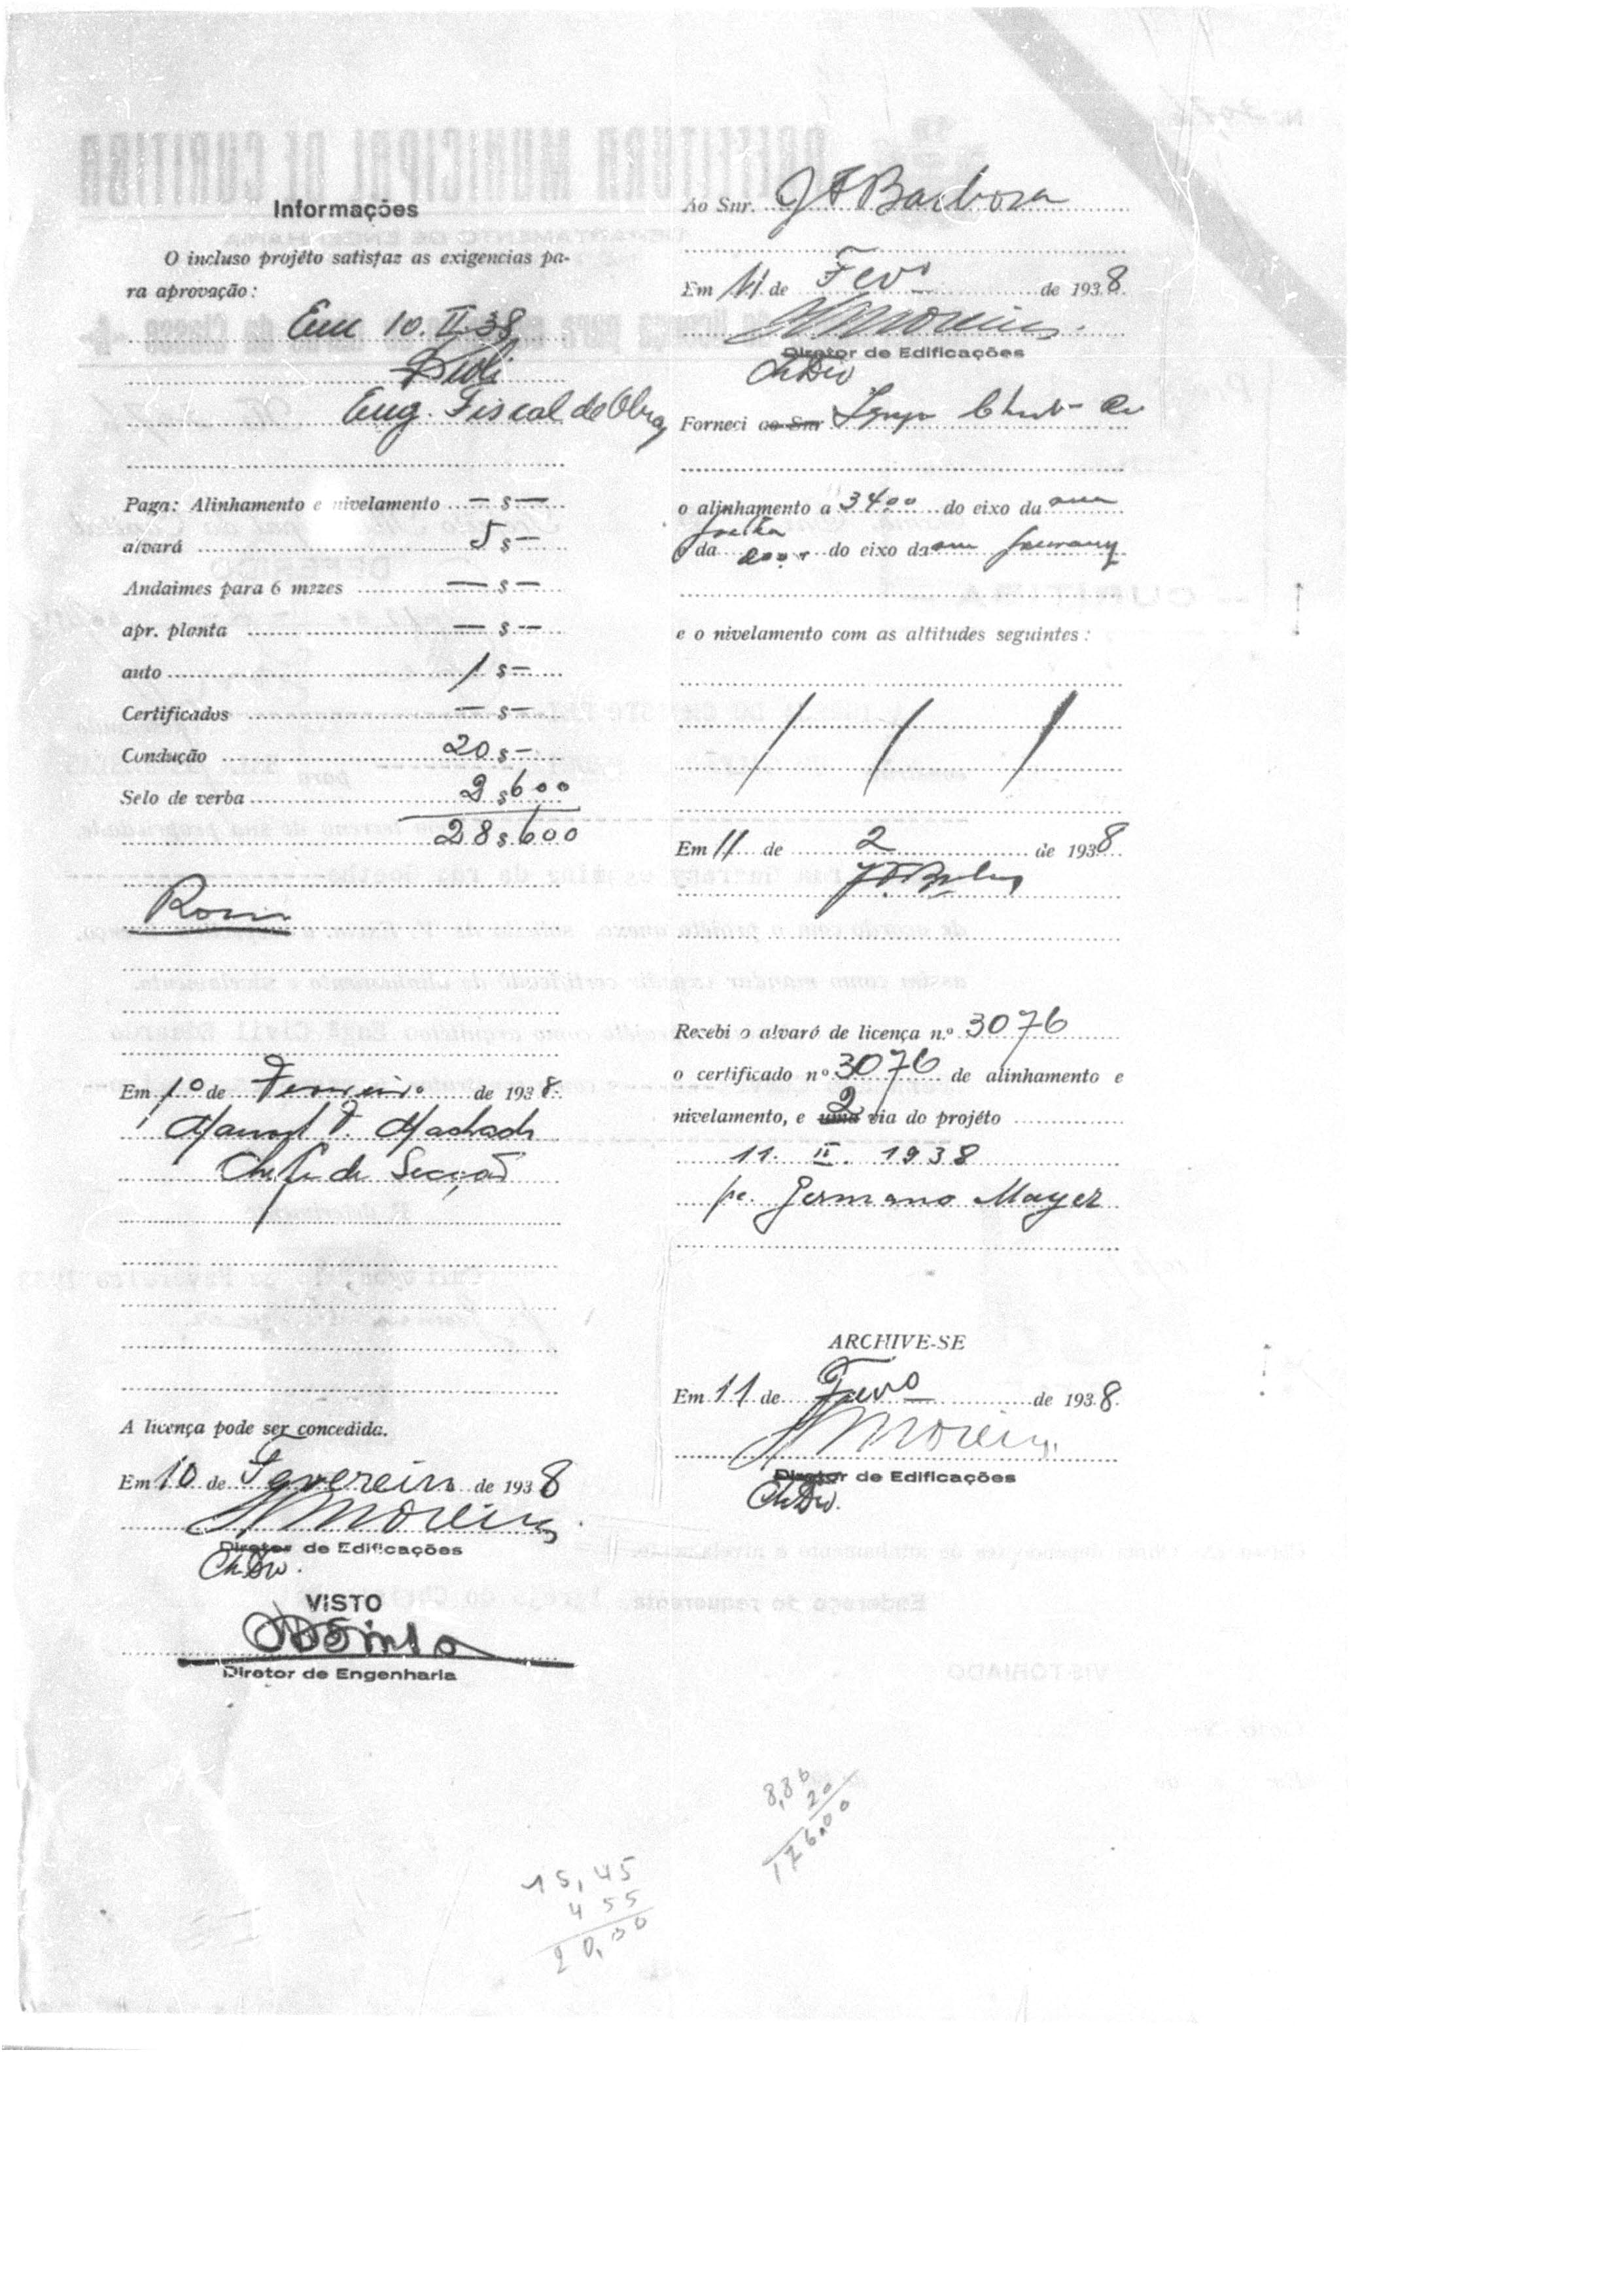 Informações
O incluso projéto satisfaz as exigencias pa-
ra aprovação:
Em 10.II.38
Eng. Fiscal de Obras
Paga: Alinhamento e nivelamento — $ —
alvará 5 $ —
Andaimes para 6 mezes — $ —
apr. planta — $ —
auto 1 $ —
Certificados — $ —
Condução 20 $ —
Selo de verba 2 $ 600
28 $ 600
Em 1º de Fevereiro de 1938.
Manoel F. Machado
Chefe de Secção
A licença pode ser concedida.
Em 10 de Fevereiro de 1938
Moreira
Diretor de Edificações
Ch Div.
VISTO
Diretor de Engenharia
Ao Snr. J F Barbosa
Em 11 de Fev. de 1938.
Moreira
Diretor de Edificações
Ch Div
Forneci ao Snr
o alinhamento a 3400 do eixo da rua
Goethe
e da do eixo da rua Guarany
e o nivelamento com as altitudes seguintes:
/ / /
Em 11 de 2 de 1938.
Recebi o alvará de licença n.º 3076
o certificado nº 3076 de alinhamento e
nivelamento, e uma 2 via do projéto
11. II. 1938
pe. Germano Mayer
ARCHIVE-SE
Em 11 de Fevo de 1938.
Moreira
Diretor de Edificações
Ch Div.
8,80
20
176,00
15,45
4 55
20,00